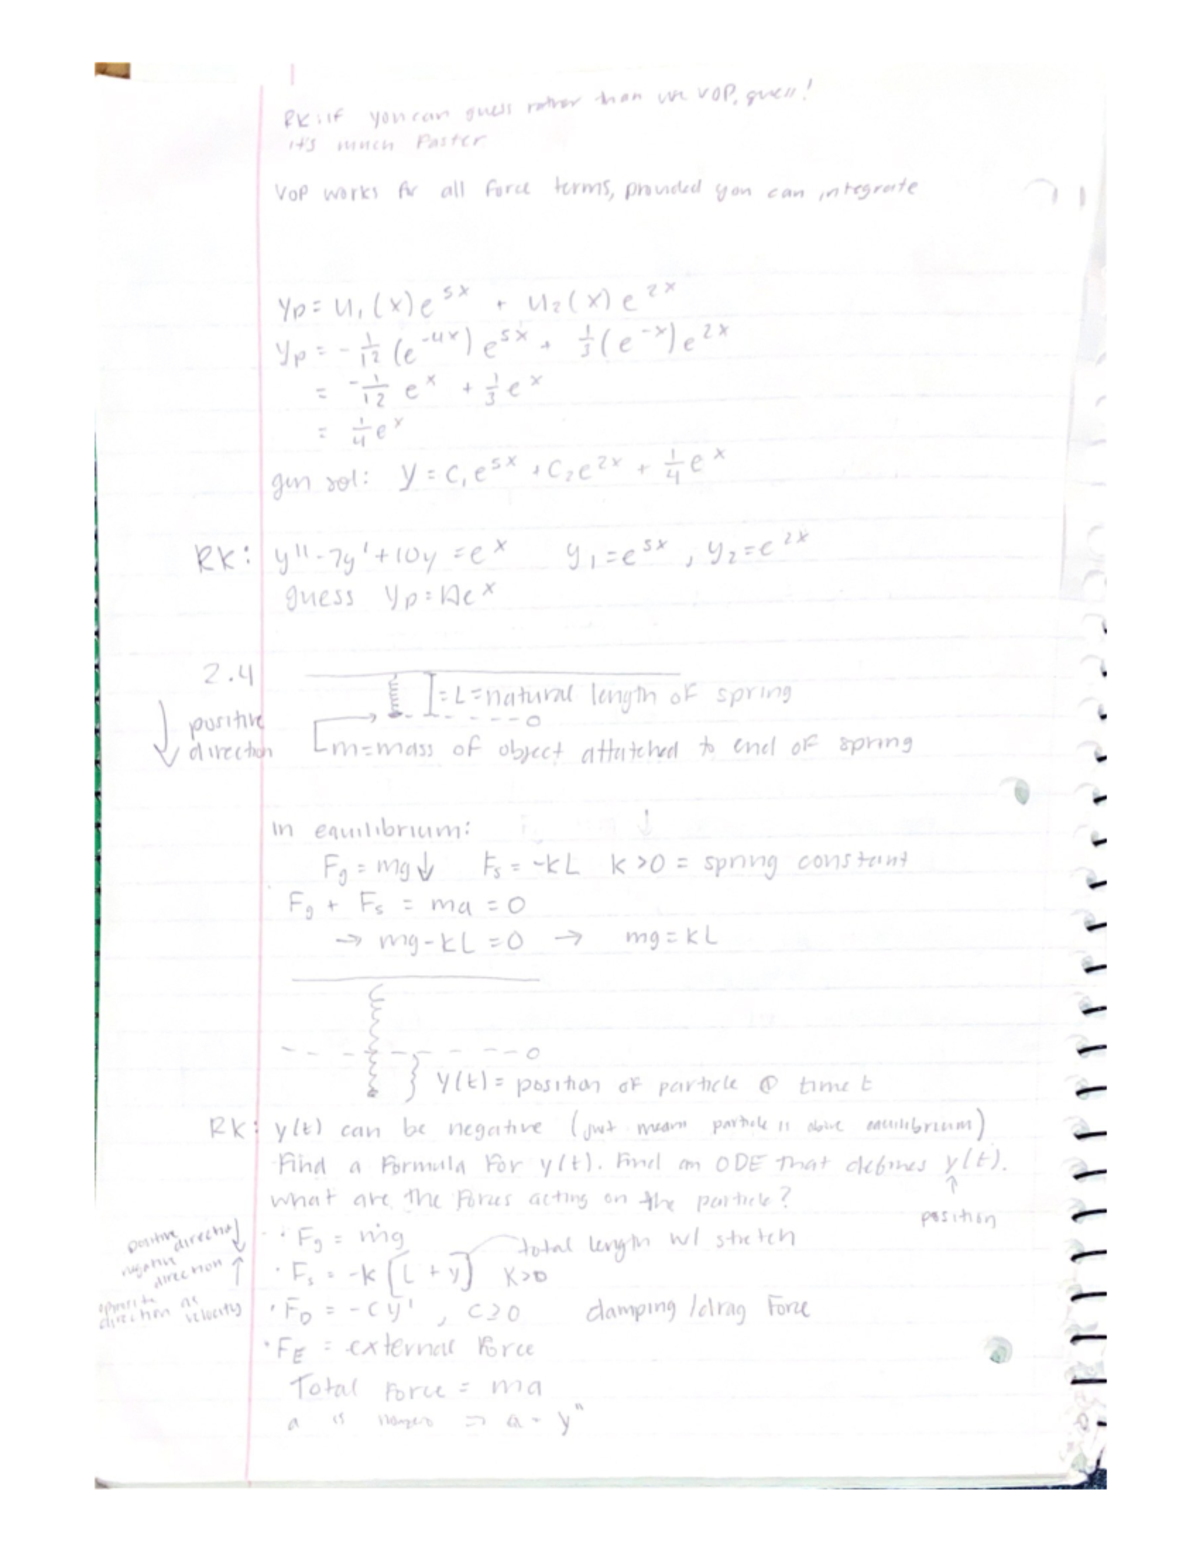 RK: if you can guess rather than use VOP, guess!
it's much Faster
VOP works for all Force terms, provided you can integrate
yp = u₁(x)e⁵ˣ + u₂(x)e²ˣ
yp = -1/12 (e⁻⁴ˣ)e⁵ˣ + 1/3(e⁻ˣ)e²ˣ
= -1/12 eˣ + 1/3 eˣ
= 1/4 eˣ
gen sol: y = c₁e⁵ˣ + c₂e²ˣ + 1/4 eˣ
RK: y'' - 7y' + 10y = eˣ y₁ = e⁵ˣ, y₂ = e²ˣ
guess yp = Aeˣ
2.4
= L = natural length of spring
positive direction
0
m = mass of object attatched to end of spring
In equilibrium:
Fg = mg↓ Fs = -kL k>0 = spring constant
Fg + Fs = ma = 0
→ mg - kL = 0 → mg = kL
0
y(t) = position of particle @ time t
RK: y(t) can be negative (just means particle is above equilibrium)
Find a Formula For y(t). Find an ODE that defines y(t).
↑ position
what are the Forces acting on the particle?
positive direction ↓
negative direction ↑
• Fg = mg
total length w/ stretch
• Fs = -k[L + y] k>0
opposite direction as velocity
• FD = -cy', c≥0 damping/drag Force
• FE = external Force
Total Force = ma
a is nonzero ⇒ a = y''